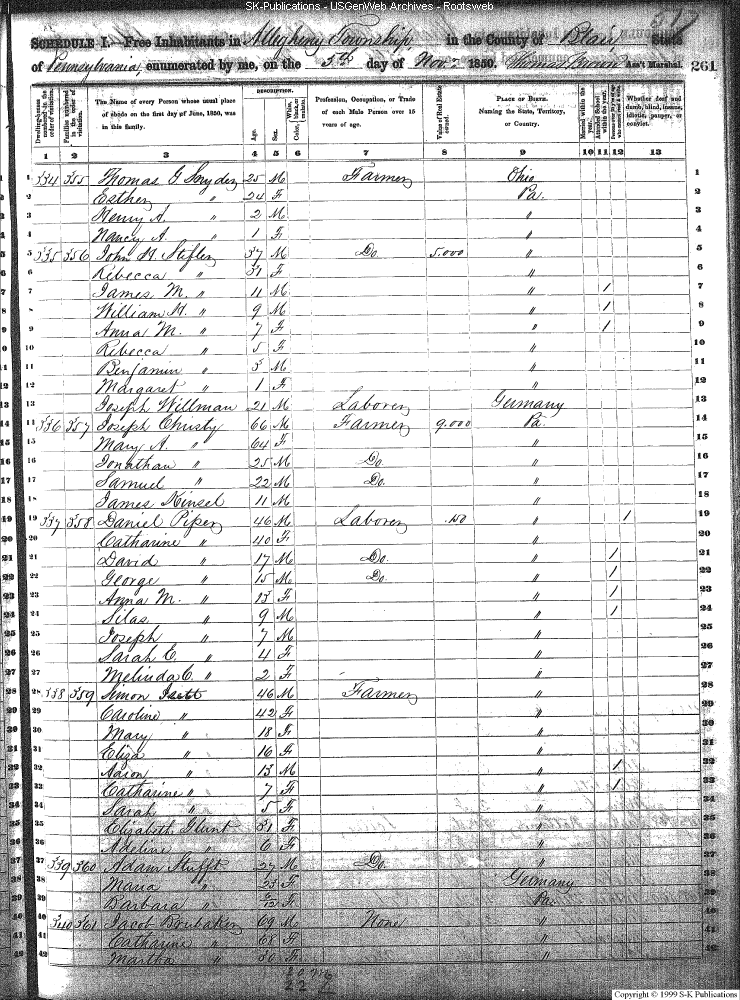 SK-Publications - USGenWeb Archives - Rootsweb
SCHEDULE I.—Free Inhabitants in Allegheny Township, in the County of Blair, State
of Pennsylvania, enumerated by me, on the 5th day of Nov. 1850. Thomas Ass't Marshal. 261
DESCRIPTION.
Dwelling-houses numbered in the order of visitation. Families numbered in the order of visitation. The Name of every Person whose usual place of abode on the first day of June, 1850, was in this family. Age. Sex. White, black, or mulatto. Color, Profession, Occupation, or Trade of each Male Person over 15 years of age. Value of Real Estate owned. PLACE OF BIRTH. Naming the State, Territory, or Country. Married within the year. Attended School within the year. Whether deaf and dumb, blind, insane, idiotic, pauper, or convict.
1 2 3 4 5 6 7 8 9 10 11 12 13
1 334 355 Thomas G Snyder 25 M Farmer Ohio 1
2 Esther " 24 F Pa. 2
3 Henry A. " 2 M " 3
4 Nancy A. " 1 F " 4
5 335 356 John H. Stifler 37 M Do 5.000 " 5
6 Rebecca " 31 F " 6
7 James M. " 11 M " / 7
8 William H. " 9 M " / 8
9 Anna M. " 7 F " / 9
10 Rebecca " 5 F " 10
11 Benjamin " 3 M " 11
12 Margaret " 1 F " 12
13 Joseph Willman 21 M Laborer Germany 13
14 336 357 Joseph Christy 66 M Farmer 9.000 Pa. 14
15 Mary A. " 64 F " 15
16 Jonathan " 25 M Do. " 16
17 Samuel " 22 M Do. " 17
18 James Kinsel 11 M " 18
19 337 358 Daniel Piper 46 M Laborer .150 " / 19
20 Catharine " 40 F " 20
21 David " 17 M Do. " / 21
22 George " 15 M Do. " / 22
23 Anna M. " 13 F " / 23
24 Silas " 9 M " / 24
25 Joseph " 7 M " 25
26 Sarah C. " 4 F " 26
27 Melinda C. " 2 F " 27
28 338 359 Simon Isett 46 M Farmer " 28
29 Caroline " 42 F " 29
30 Mary " 18 F " 30
31 Eliza " 16 F " 31
32 Aaron " 13 M " / 32
33 Catharine " 7 F " / 33
34 Sarah " 5 F " 34
35 Elizabeth Glunt 31 F " 35
36 Adeline " 6 F " 36
37 339 360 Adam Stufft 27 M Do. " 37
38 Maria " 23 F Germany 38
39 Barbara " F Pa. 39
40 340 361 Jacob Brubaker 69 M None " 40
41 Catharine " 68 F " 41
42 Martha " 30 F " 42
Copyright © 1999 S-K Publications